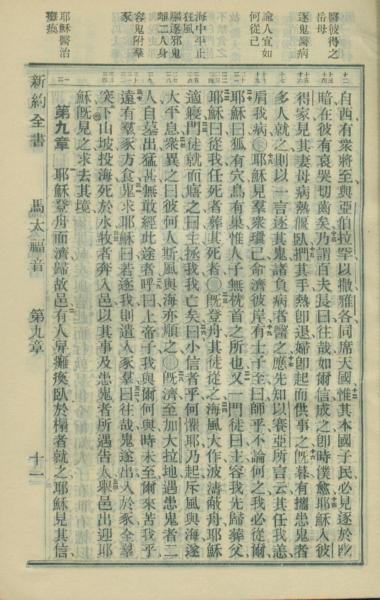 醫彼得之
岳母
逐鬼醫病
論人宜如
何從己
海中平止
狂風
驅逐邪鬼
離二人身
容鬼附羣
豕
耶穌醫治
癱瘓
自西有衆將至與亞伯拉罕以撒雅各同席天國惟其本國子民必見逐於幽
暗在彼有哀哭切齒矣乃謂百夫長曰往哉如爾信成之卽時僕愈耶穌入彼
得家見其妻母病熱偃臥捫其手熱卽退婦卽起而供事之旣暮有攜患鬼者
多人就之則以一言逐其鬼諸負病者醫之應先知以賽亞所言云其任我恙
肩我病◯耶穌見羣衆環己命濟彼岸有士子至曰師乎不論何之我必從爾
耶穌曰狐有穴鳥有巢惟人子無枕首之所也又一門徒曰主容我先歸葬父
耶穌曰從我任死者葬其死者◯旣登舟其徒從之海風大作波濤蔽舟耶穌
適寢門徒就而寤之曰主拯我我亡矣曰小信者乎何懼耶乃起斥風與海遂
大平息衆異之曰彼何人斯風與海亦順之◯旣濟至加大拉地遇患鬼者二
人自墓出猛甚無敢經此途者呼曰上帝子我與爾何與時未至爾來苦我乎
遠有羣豕方食鬼求耶穌曰若逐我則遣入豕羣曰往哉鬼遂出入於豕全羣
突下山坡投海死於水牧者奔入邑以其事及患鬼者所遇告人舉邑出迎耶
穌旣見之求去其境
第九章　耶穌登舟而濟歸故邑有人舁癱瘓臥於榻者就之耶穌見其信
新約全書　馬太福音　第九章　十一